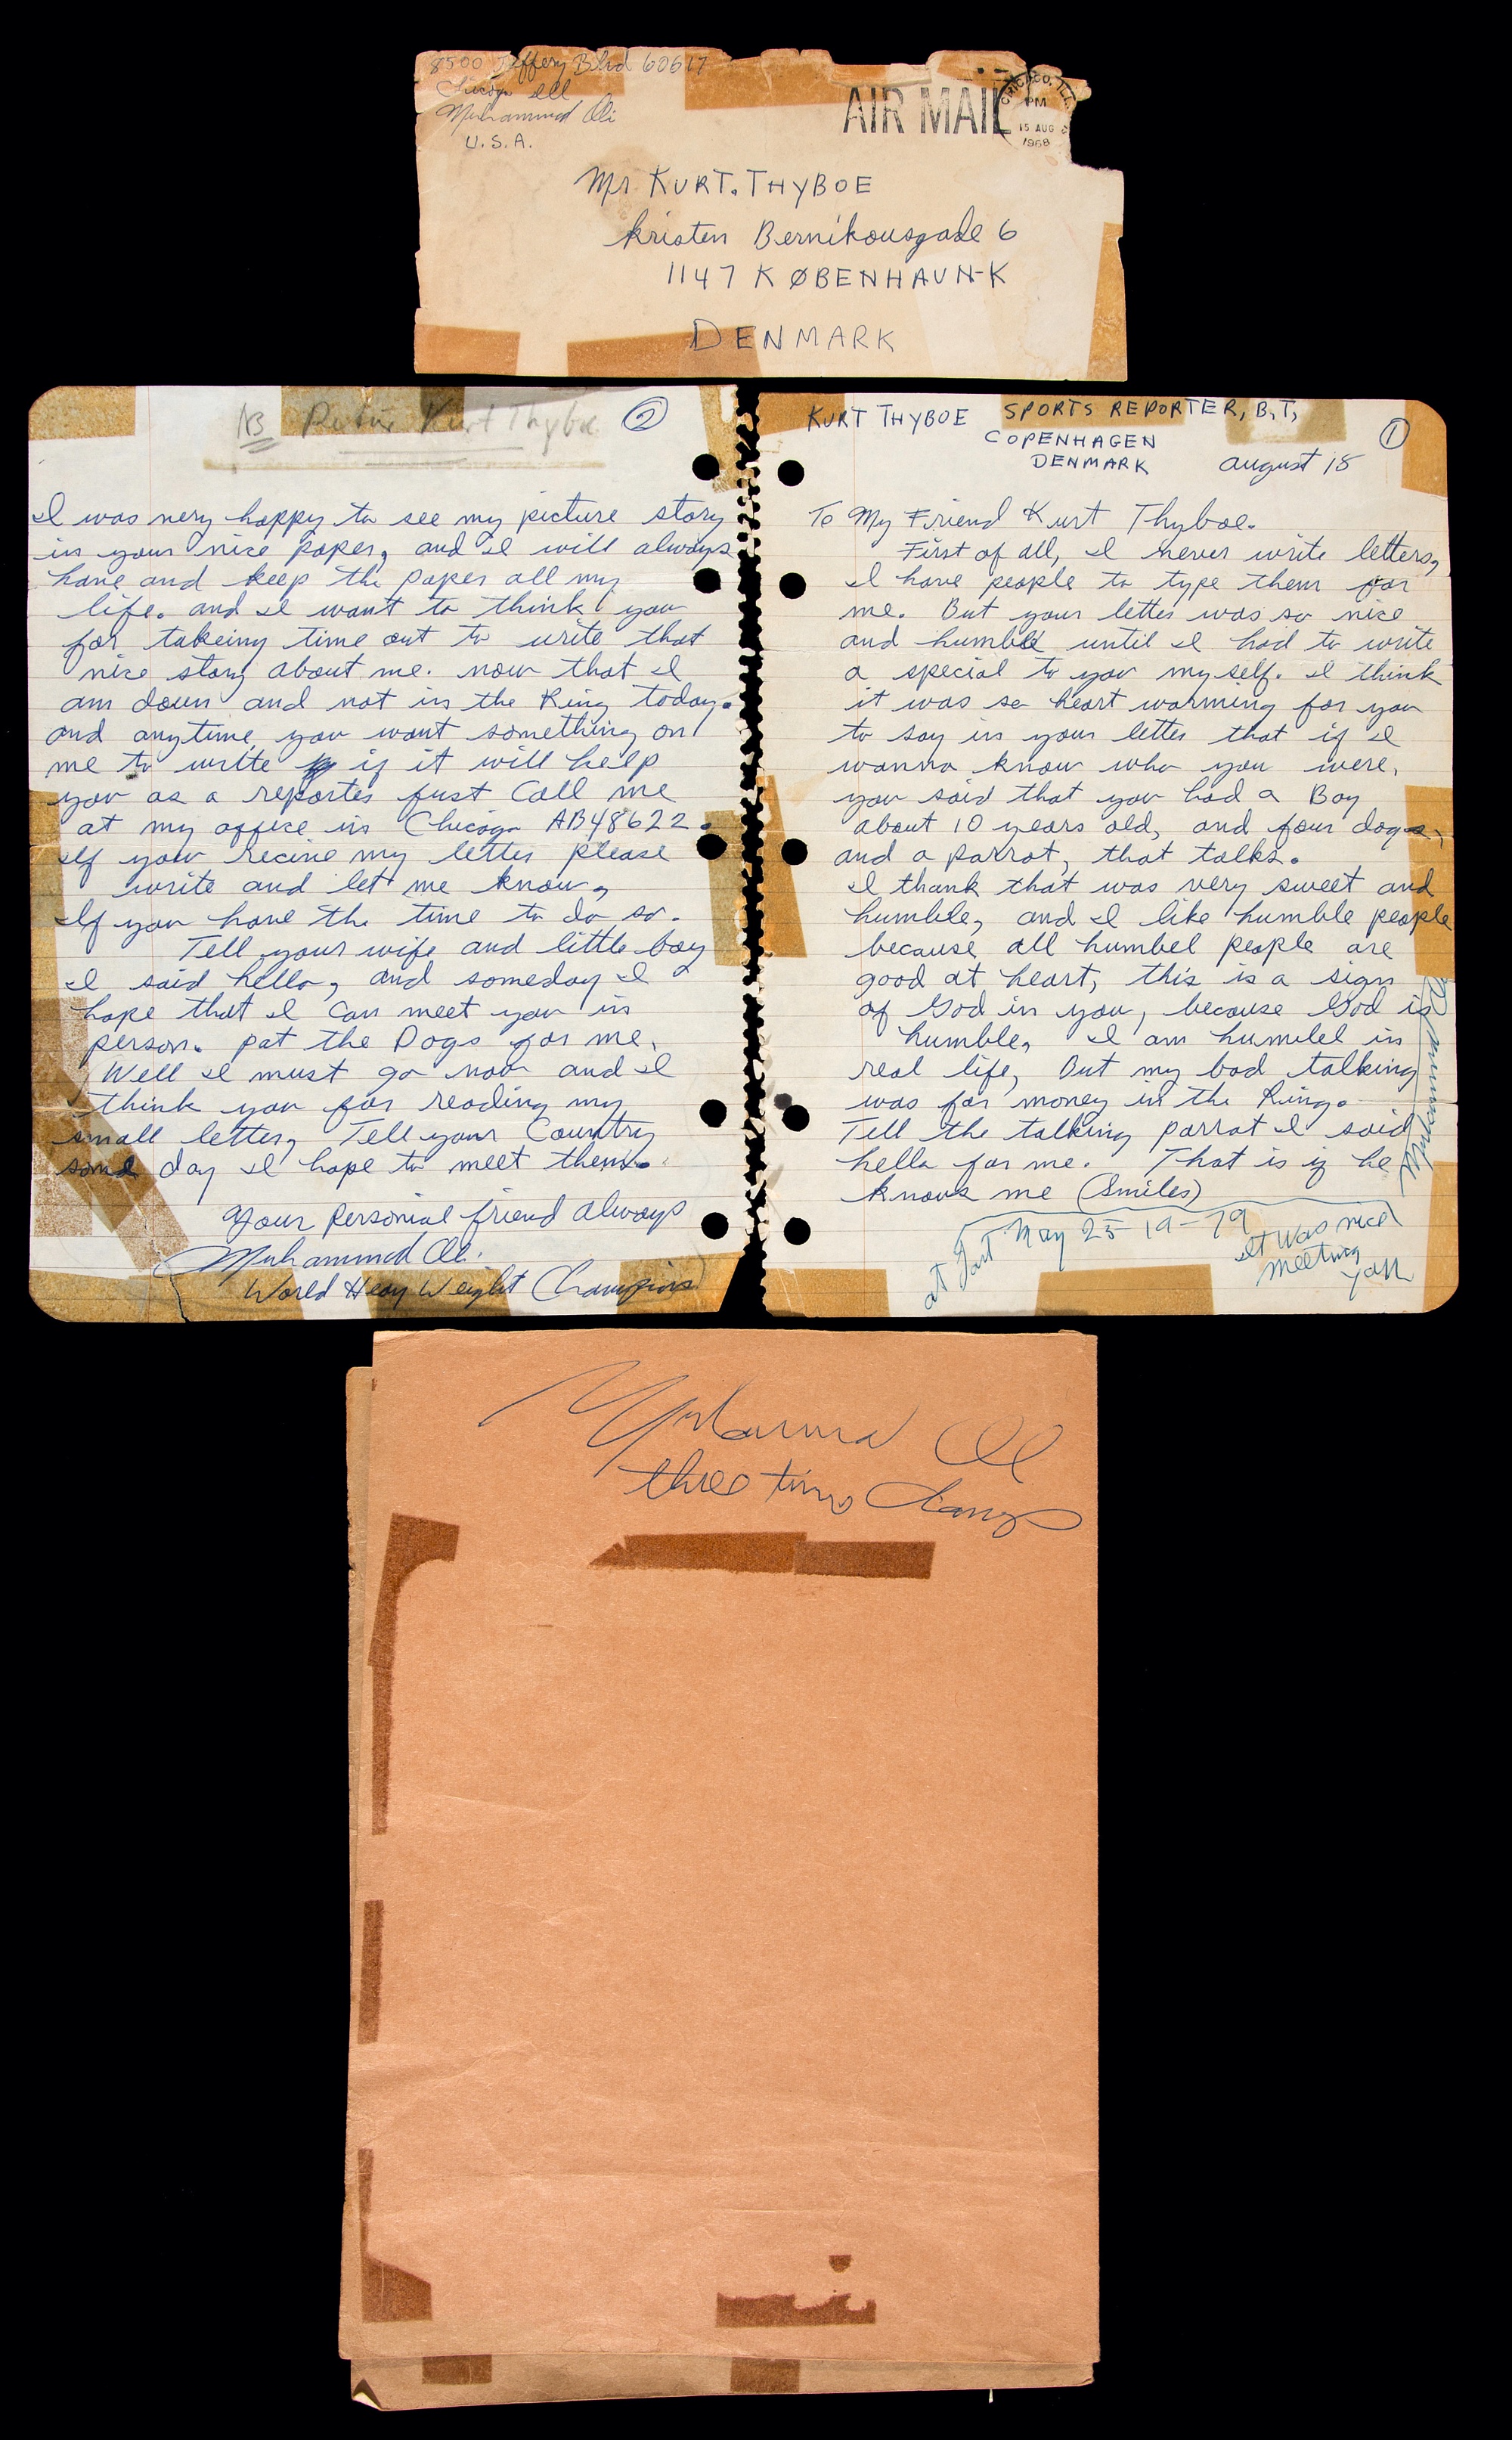 8500 Jeffery Blvd 60617
Chicago Ill
Muhammad Ali
U.S.A.
AIR MAIL
CHICAGO, ILL.
PM
15 AUG
1968
Mr KURT. THYBOE
kristen Bernikousgade 6
1147 KØBENHAUN-K
DENMARK
KURT THYBOE SPORTS REPORTER, B.T,
COPENHAGEN
DENMARK august 15
1
To My Friend Kurt Thyboe.
First of all, I never write letters,
I have people to type them for
me. But your letter was so nice
and humble until I had to write
a special to you my self. I think
it was so heart warming for you
to say in your letter that if I
wanna know who you were,
you said that you had a Boy
about 10 years old, and four dogs,
and a parrot, that talks.
I thank that was very sweet and
humble, and I like humble people
because all humbel people are
good at heart, this is a sign
of God in you, because God is
humble, I am humbel in
real life, But my bad talking
was for money in the Ring.
Tell the talking parrot I said
hello for me. That is if he
knows me (Smiles)
Muhammad Ali
at Last May 25 19-79
It was nice
meeting
you
NB Retur Kurt Thyboe
2
I was very happy to see my picture story
in your nice paper, and I will always
have and keep the paper all my
life. and I want to think you
for takeing time out to write that
nice story about me. now that I
am down and not in the Ring today.
and anytime you want something on
me to write if it will help
you as a reporter just Call me
at my office in Chicago AB48622.
If you recive my letter please
write and let me know,
If you have the time to do so.
Tell your wife and little boy
I said hello, and someday I
hope that I can meet you in
person. pat the Dogs for me.
Well I must go now and I
think you for reading my
small letter, Tell your Country
some day I hope to meet them.
Your Personial friend always
Muhammad Ali.
World Heavy Weight Champion
Muhammad Ali
three time Champ